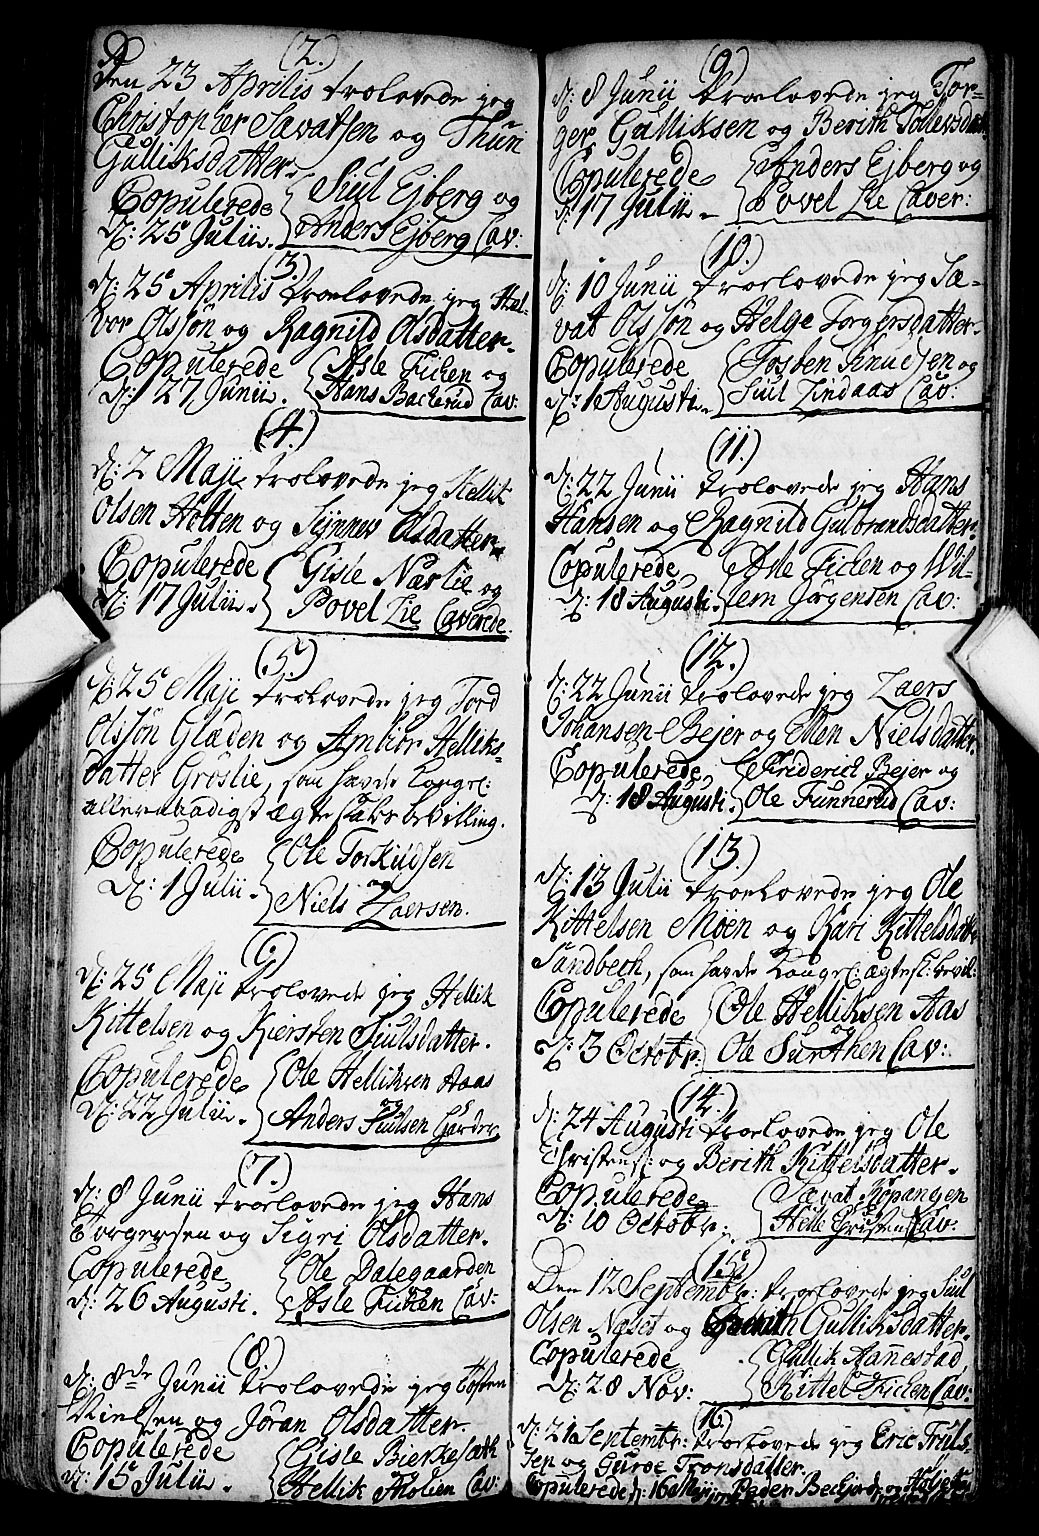 (2.)
Den 23 Aprilis trolovede jeg
Christopher Sævatsen og Thuri
Gulliksdatter.
Copulerede
d: 25 Julii.
Siul Ejberg og
Anders Ejberg Cav:
(3.)
d: 25 Aprilis troelovede jeg Hal-
vor Olssøn og Ragnild Olsdatter.
Copulerede
d: 27 Junii.
Asle Ficken og
Hans Backerud Cav:
(4.)
d: 2 Maji trolovede jeg Hellik
Olsen Holten og Synnev Olsdatter.
Copulerede
d: 17 Julii.
Gisle Narlie og
Povel Lie Caverede.
(5.)
d: 25 Maji trolovede jeg Tord
Olssøn Glæden og Ambior Helliks-
datter Groslie, som havde Kongel:
allernaadigst ægteskabs bevilling.
Copulerede
d: 1 Julii.
Ole Torkildsen
og
Niels Laersen.
6)
d: 25 Maji trolovede jeg Hellik
Kittelsen og Kiersten Siulsdatter.
Copulerede
d: 22 Julii.
Ole Helliksen Aaas
og
Anders Siulsen
(7.)
d: 8 Junii troelovede jeg Hans
Torgersen og Sigri Olsdatter.
Copulerede
d: 26 Augusti.
Ole Dalegaarden
Asle Ficken Cav:
(8.)
d: 8de Junii trolovede jeg Tosten
Nielsen og Jøran Olsdatter.
Copulerede
d: 15 Julii.
Gisle
Hellik Cav:
(9.)
d: 8 Junii troelovede jeg Tor-
ger Gulliksen og Berith Tollevsdatt
Copulerede
d: 17 Julii.
Anders Ejberg og
Povel Lie Caver:
(10.)
d: 10 Junii troelovede jeg Sæ-
vat Olssøn og Helge Torgersdatter.
Copulerede
d: 1 Augusti.
Tosten Knudsen og
Siul Lindaas Cav:
(11.)
d: 22 Junii trolovede jeg Hans
Hansen og Ragnild Gulbrandsdatter.
Copulerede
d: 18 Augusti.
Asle Ficken og Wil-
lem Jørgensen Cav:
(12.)
d: 22 Junii trolovede jeg Laers
Johansen Bejer og Ellen Nielsdatter.
Copulerede
d: 18 Augusti.
Friderich Bejer og
Ole Funnerud Cav:
(13.)
d: 13 Julii troelovede jeg Ole
Kittelsen Moen og Kari Kittelsdatter
Sandbech, som havde Kongel: ægtesk: bevil:
Copulerede
d: 3 Octobr:
Ole Helliksen Aas
og
Ole Surthen Cav:
(14.)
d: 24 Augusti troelovede jeg Ole
Christens: og Berith Kittelsdatter.
Copulerede
d: 10 Octobr.
Sævat Kopangen
Helle Cav:
(15)
Den 12 Septembr: troelovede jeg Siul
Olsen Næset og Gulliksdatter.
Copulerede
d: 28 Nov:
Gullik Aanestad
Kittel Ficken Cav:
16)
d: 21 Septembr: troelovede jeg Eric Truls-
sen og Guroe Tronsdatter.
Copulerede d: 16 Maji, Peder og